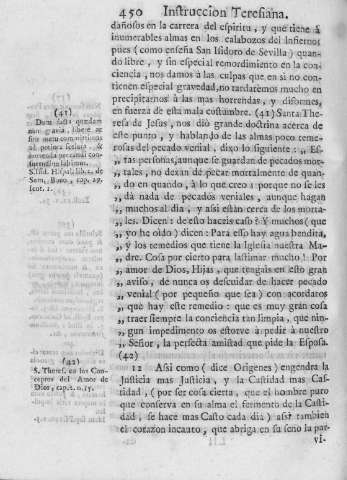 450 Instruccion Teresiana.
dañosos en la carrera del espiritu, y que tiene à
inumerables almas en los calabozos del Infierno,
pues (como enseña San Isidoro de Sevilla) quan-
do libre, y sin especial remordimiento en la con-
ciencia, nos damos à las culpas que en si no con-
tienen especial gravedad, no tardarèmos mucho en
precipitarnos à las mas horrendas, y disformes,
en fuerza de esta mala costumbre. (41) Santa The-
resa de Jesus, nos diò grande doctrina acerca de
este punto, y hablando de las almas poco teme-
rosas del pecado venial, dixo lo siguiente: „ Es-
„ tas personas, aunque se guardan de pecados mor-
„ tales, no dexan de pecar mortalmente de quan-
„ do en quando, à lo que creo: porque no se les
„ dà nada de pecados veniales, aunque hagan
„ muchos al dia, y assi estàn cerca de los morta-
„ les. Dicen: de esto haceis caso? Y muchos (que
„ yo he oìdo) dicen: Para esso hay agua bendita,
„ y los remedios que tiene la Iglesia nuestra Ma-
„ dre. Cosa por cierto para lastimar mucho! Por
„ amor de Dios, Hijas, que tengais en esto gran
„ aviso, de nunca os descuidar de hacer pecado
„ venial (por pequeño que sea) con acordaros
„ que hay este remedio: que es muy gran cosa
„ traer siempre la conciencia tan limpia, que nin-
„ gun impedimento os estorve à pedir à nuestro
„ Señor, la perfecta amistad que pide la Esposa.
(42)
12 Assi como (dice Origenes) engendra la
Justicia mas Justicia, y la Castidad mas Cas-
tidad, (por ser cosa cierta, que el hombre puro
que conserva en su alma el fermento de la Casti-
dad, se hace mas Casto cada dia) assi tambien
el corazon incauto, que abriga en su seno la par-
vi-
(41)
Dum facta quædam
min gravia, libere ac
sine metu committimus
ad potiora scelera, &
S. Isid. Hispal. lib. 2. de
Sum. Bono, cap. 19.
sent. 1.
(42)
S. Theres. en los Con-
ceptos del Amor de
Dios, cap. 2. n. 15.